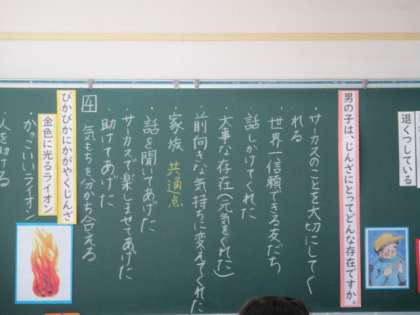 退くつしている
男の子は、じんざにとってどんな存在ですか。
・サーカスのことを大切にしてく
れる
・世界一信頼できる友だち
・話しかけてくれた
・大事な存在(元気をくれた)
・前向きな気持ちに変えてくれた
・家族 共通点
・話を聞いてあげた
・サーカスで楽しませてあげた
・助けてあげた
・気もちを分かち合える
4
ぴかぴかにかがやくじんざ
金色に光るライオン
・かっこいいライオン
人を助ける